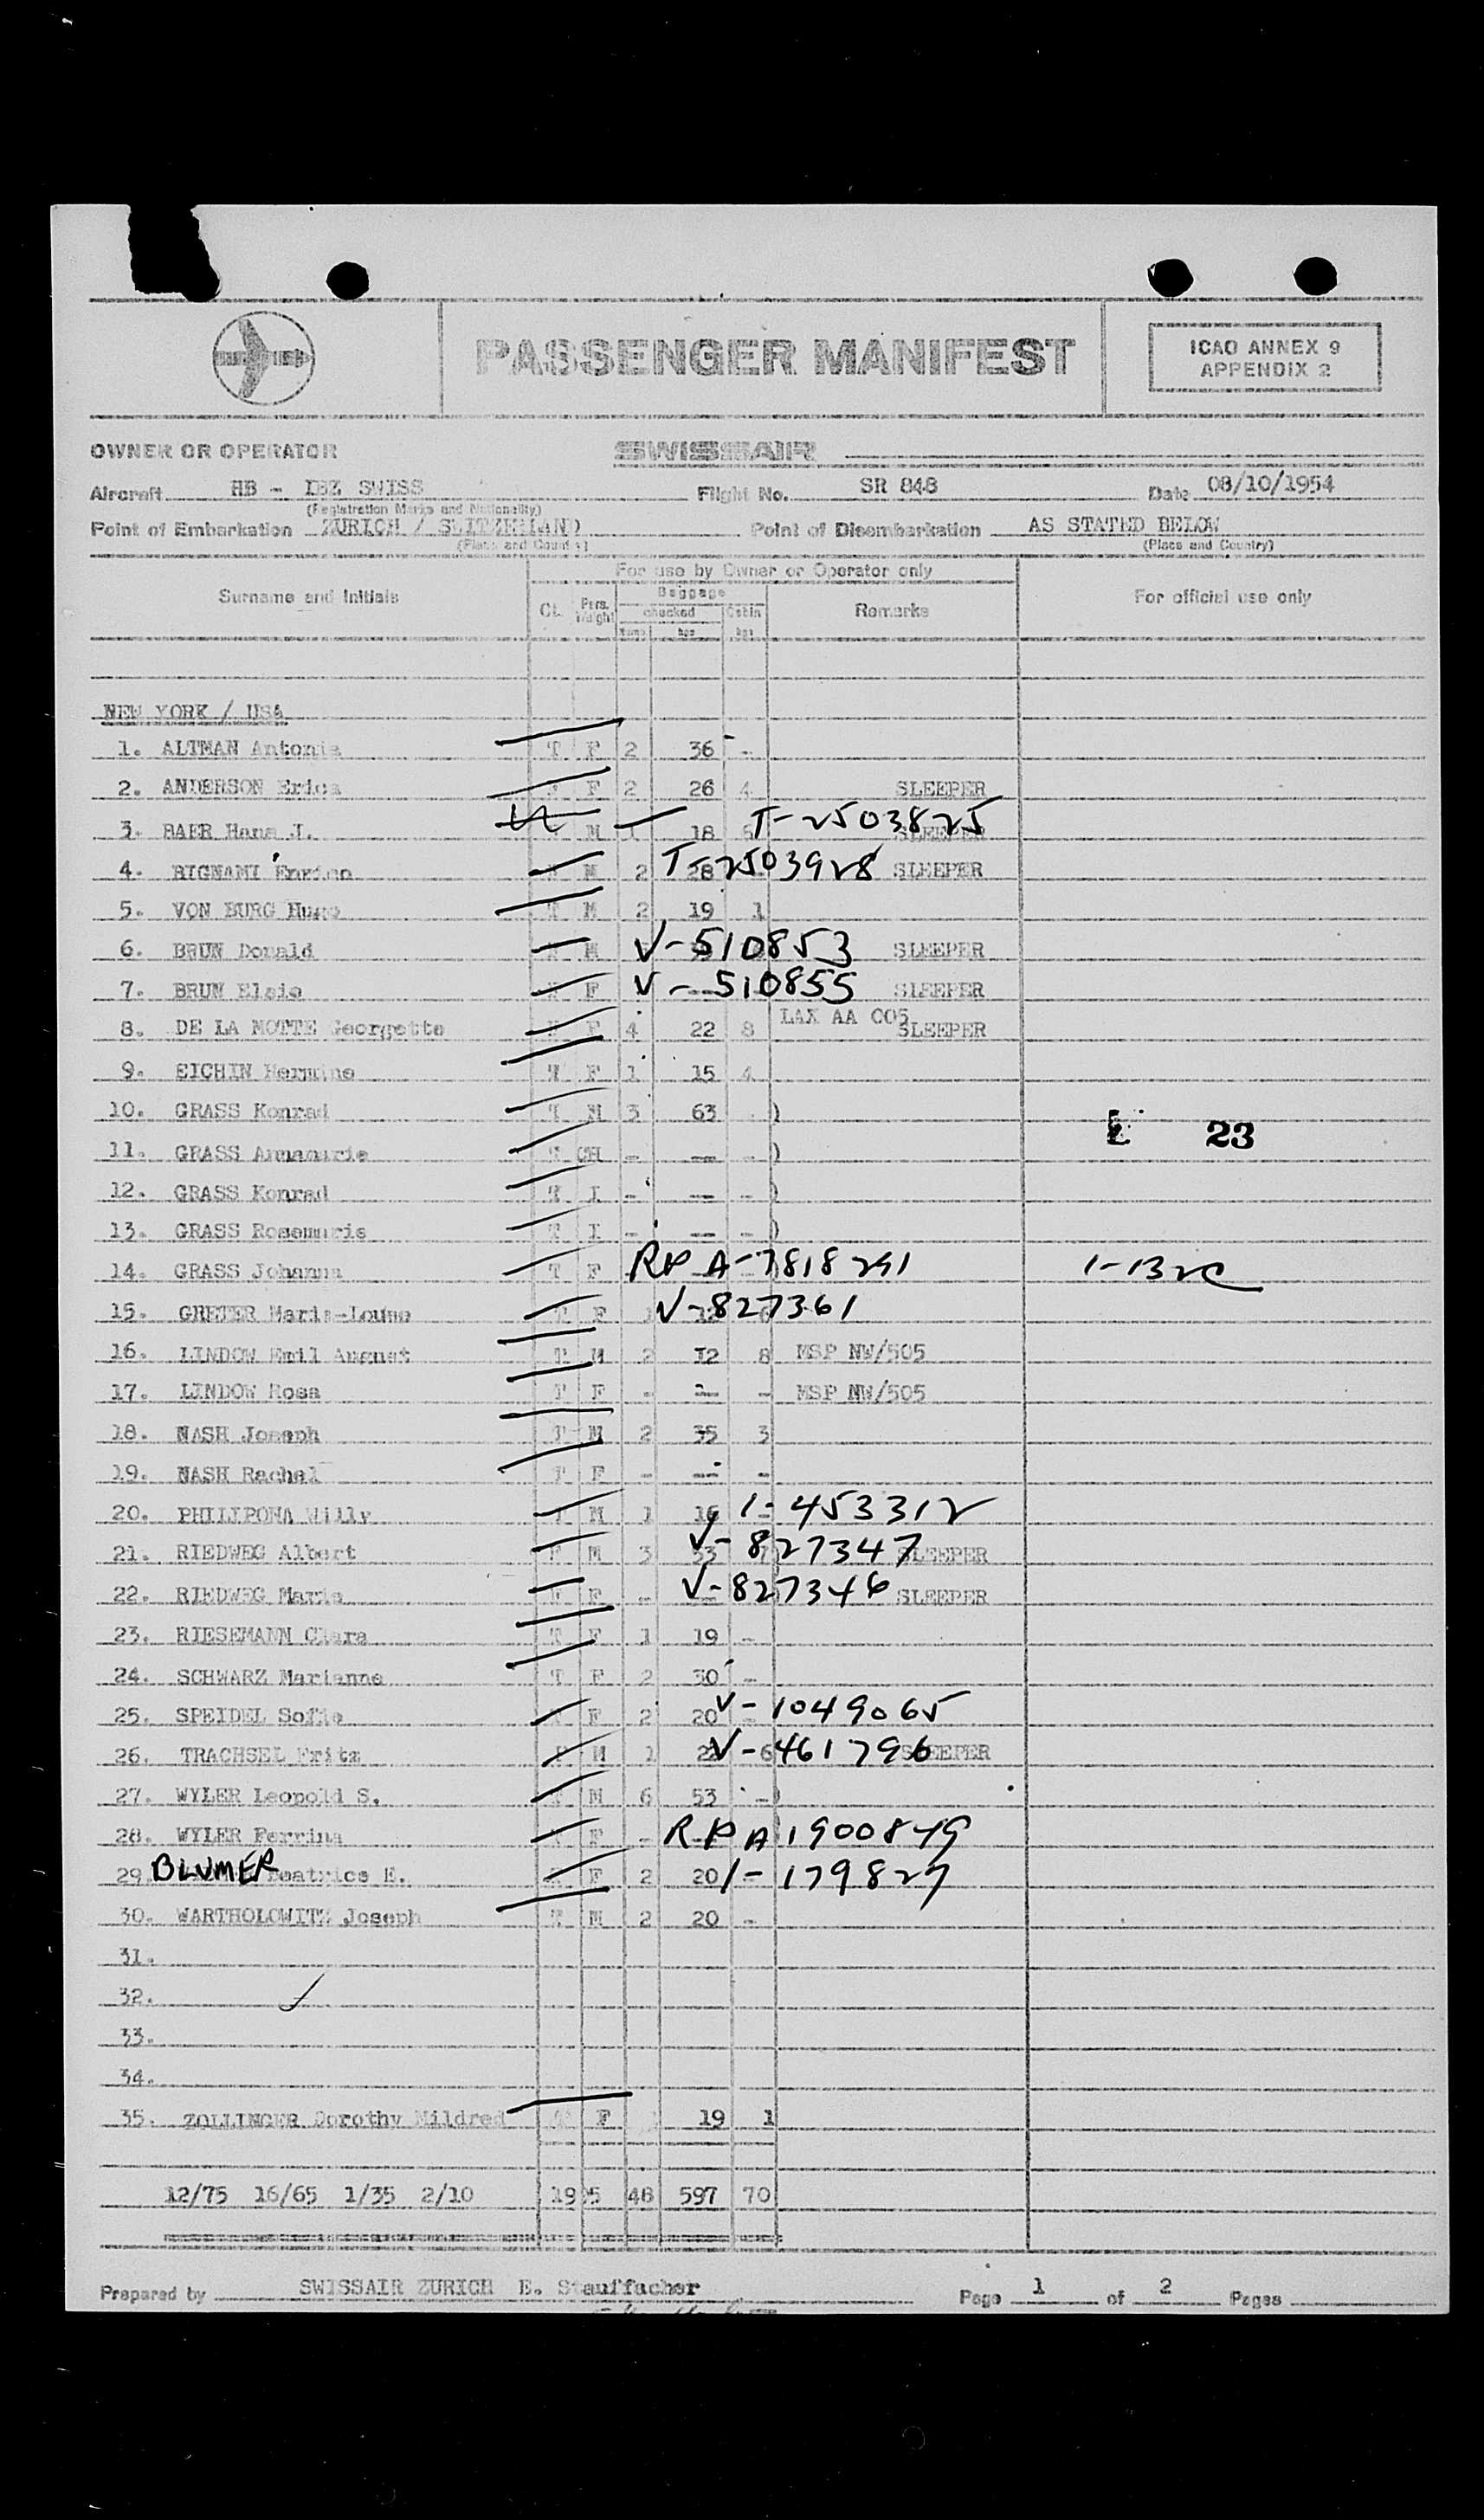 PASSENGER MANIFEST
ICAO ANNEX 9
APPENDIX 2
OWNER OR OPERATOR SWISSAIR
Aircraft HB - IBZ SWISS Flight No. SR 848 Date 08/10/1954
(Registration Marks and Nationality)
Point of Embarkation ZURICH / SLITZERLAND Point of Disembarkation AS STATED BELOW
(Place and Country) (Place and Country)
For use by Owner or Operator only
Surname and Initials CL. Pers. Weight Baggage checked Cabin kgs kgs Remarks For official use only
NEW YORK / USA
1. ALTMAN Antonia T F 2 36 -
2. ANDERSON Erica F 2 26 4 SLEEPER
3. BAER Hans J. M 1 18 T-2503825 SLEEPER
4. BIGNAMI Enrico M 2 28 T-2503928 SLEEPER
5. VON BURG Hugo T M 2 19 1
6. BRUN Donald M V-510853 SLEEPER
7. BRUN Elsie F V-510855 SLEEPER
8. DE LA MOTTE Georgette F F 4 22 8 LAX AA 005 SLEEPER
9. EICHIN Hermine T F 1 15 4
10. GRASS Konrad T M 3 63 )
11. GRASS Annamarie T CH - -- - )
23
12. GRASS Konrad T I - -- - )
13. GRASS Rosemarie T I - -- - )
14. GRASS Johanna T F RPA-7818291 1-132C
15. GRETER Marie-Louise T F 1 12 V-827361
16. LINDOW Emil August T M 2 12 8 MSP NW/505
17. LINDOW Rosa T F - -- - MSP NW/505
18. NASH Joseph T M 2 35 3
19. NASH Rachel T F - -- -
20. PHILIPONA Willy T M 1 16 1-453312
21. RIEDWEG Albert F M 3 33 7 V-827347 SLEEPER
22. RIEDWEG Maria F F - V-827346 SLEEPER
23. RIESEMANN Clara T F 1 19 -
24. SCHWARZ Marianne T F 2 30 -
25. SPEIDEL Sofie F 2 20 V-1049065
26. TRACHSEL Fritz F M 1 22 6 V-461796 SLEEPER
27. WYLER Leopold S. T M 6 53 - )
28. WYLER Perrina F - RPA 1900849
29. BLUMER Beatrice E. F 2 20 1-179827
30. WARTHOLOWITZ Joseph T M 2 20 -
31.
32.
33.
34.
35. ZOLLINGER Dorothy Mildred F 19 1
12/75 16/65 1/35 2/10 1905 48 597 70
Prepared by SWISSAIR ZURICH E. Stauffacher Page 1 of 2 Pages